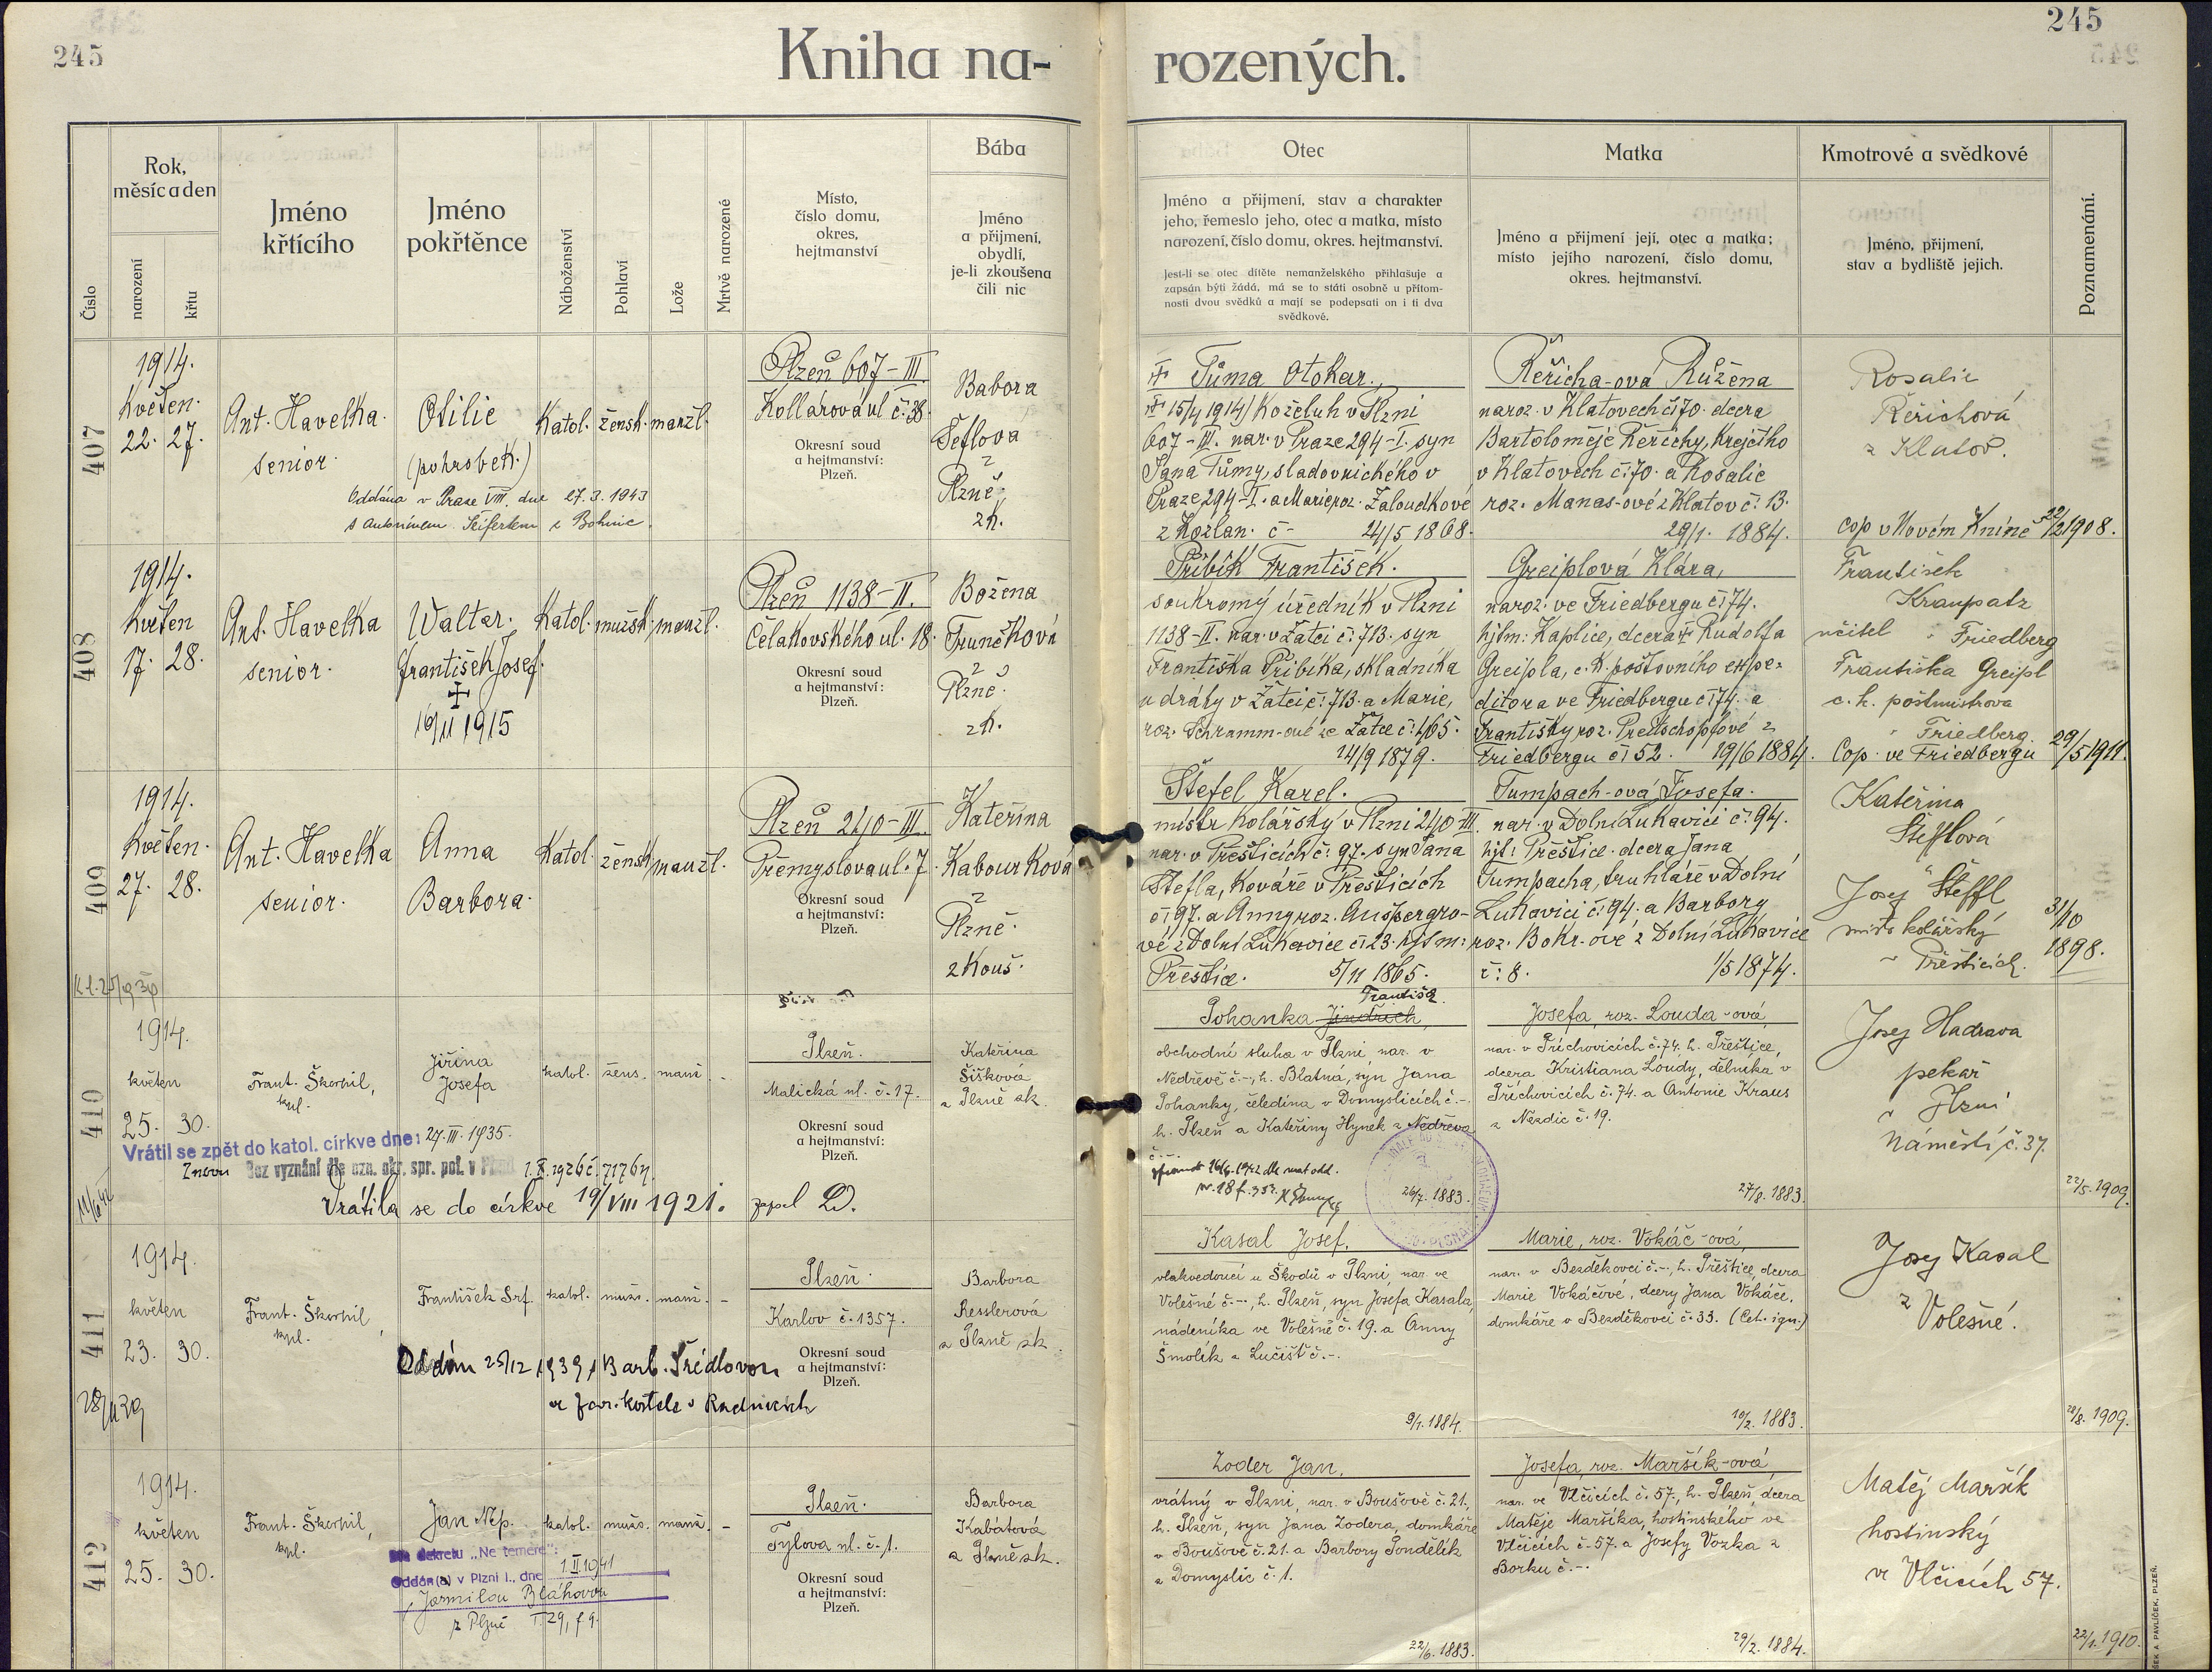 245
Kniha na-
rozených.
245
Číslo
Rok,
měsíc a den
narození
křtu
Jméno
křtícího
Jméno
pokřtěnce
Náboženství
Pohlaví
Lože
Mrtvě narozené
Místo,
číslo domu,
okres,
hejtmanství
Bába
Jméno
a přijmení,
obydlí,
je-li zkoušena
čili nic
Otec
Jméno a přijmení, stav a charakter
jeho, řemeslo jeho, otec a matka, místo
narození, číslo domu, okres. hejtmanství.
Jest-li se otec dítěte nemanželského přihlašuje a
zapsán býti žádá, má se to státi osobně u přítom-
nosti dvou svědků a mají se podepsati on i ti dva
svědkové.
Matka
Jméno a přijmení její, otec a matka;
místo jejího narození, číslo domu,
okres. hejtmanství.
Kmotrové a svědkové
Jméno, přijmení,
stav a bydliště jejich.
Poznamenání.
407
1914.
Květen.
22. 27.
Ant. Havelka.
senior.
Otilie
(pohrobek.)
Katol. žensk. manžl.
Oddána v Praze VIII. dne 27.3.1943
s Antonínem Seifertem z Bohnic.
Plzeň 607-III.
Kollárova ul č: 38.
Okresní soud
a hejtmanství:
Plzeň.
Babora
Šeflová
z
Plzně,
zk.
Tůma Otokar.
15/4 1914) Koželuh v Plzni
607-III. nar. v Praze 294-I. syn
Jana Tůmy, sladovnického v
Praze 294-I. a Marie roz. Žaloudkové
z Kožlan. č- 24/5 1868.
Řeřicha-ová Růžena
naroz. v Klatovech č: 70. dcera
Bartoloměje Řeřichy, Krejčího
v Klatovech č: 70. a Rosalie
roz. Manas-ové z Klatov č: 13.
29/1. 1884.
Rosalie
Řeřichová
z Klatov.
cop v Novém Kníně 22/2 1908.
408
1914.
Květen
17. 28.
Ant. Havelka
senior.
Walter.
František Josef.
19/II 1915
Katol. mužsk. manžl.
Plzeň 1138-II.
Čelakovského ul. 18.
Okresní soud
a hejtmanství:
Plzeň.
Božena
Trunečková
z
Plzně.
zk.
Přibík František.
soukromý úředník v Plzni
1138-II. nar. v Žatci č: 713. syn
Františka Přibíka, skladníka
u dráhy v Žatci č: 713. a Marie,
roz. Schramm-ové ze Žatce č: 465.
14/9 1879.
Greiplová Klára,
naroz. ve Friedbergu č: 74.
hjtm: Kaplice, dcera Rudolfa
Greipla, c. k. poštovního expe-
ditora ve Friedbergu č: 74. a
Františky roz. Pretschopfové z
Friedbergu č: 52. 19/6 1884.
František
Kraupatz
učitel Friedberg
Františka Greipl
c. k. poštmistrova
Friedberg.
Cop. ve Friedbergu 29/5 1911.
409
1914.
Květen.
27. 28.
Ant. Havelka
senior.
Anna
Barbora.
Katol. žensk. manžl.
Plzeň 240-III.
Přemyslova ul. 7.
Okresní soud
a hejtmanství:
Plzeň.
Kateřina
Kabourková
z
Plzně.
zkouš.
Štefel Karel.
mistr Kolářský v Plzni 240-III.
nar. v Přešticích č: 97. syn Jana
Štefla, Kováře v Přešticích
č: 97. a Anny roz. Aušpergro-
vé z Dolní Lukavice č: 23. hjtm:
Přeštice. 5/11 1865.
Tumpach-ová Josefa.
nar. v Dolní Lukavici č: 94.
hjt: Přeštice. dcera Jana
Tumpacha, truhláře v Dolní
Lukavici č: 94. a Barbory
roz. Bokr-ové z Dolní Lukavice
č: 8. 1/5 1874.
Kateřina
Štefflová
Josef Šteffl
mistr kolářský
Přešticích.
31/10
1898.
410
1914.
květen
25. 30.
Frant. Škorpil,
kpl.
Jiřina
Josefa
katol. žens. manž. -
Vrátil se zpět do katol. církve dne: 27.III.1935.
Znovu Bez vyznání dle ozn. okr. spr. pol. v Plzni 1.X.1926 č. 71764.
Vrátila se do církve 19/VIII 1921.
Plzeň.
Malická ul. č. 17.
Okresní soud
a hejtmanství:
Plzeň.
Kateřina
Šišková
z Plzně zk.
František
Pohanka Jindřich,
obchodní sluha v Plzni, nar. v
Nedřevě č.-, h. Blatná, syn Jana
Pohanky, čeledína v Domyslicích č.-.
h. Plzeň a Kateřiny Hynek z Nedřeva
č.-.
26/7. 1883.
Josefa, roz. Louda-ová,
nar. v Příchovicích č. 74. h. Přeštice,
dcera Kristiana Loudy, dělníka v
Příchovicích č. 74. a Antonie Kraus
z Nezdic č. 19.
27/8. 1883.
Josef Hadrava
pekař
v Plzni
Náměstí č. 37.
22/5. 1909.
411
1914.
květen
23. 30.
Frant. Škorpil,
kpl.
František Srf.
katol. mužs. manž. -
Oddán 25/12 1939 s Barb. Šrédlovou
ve far. kostele v Radnicích
Plzeň.
Karlov č. 1357.
Okresní soud
a hejtmanství:
Plzeň.
Barbora
Resslerová
z Plzně zk.
Kasal Josef,
vlakvedoucí u Škodů v Plzni, nar. ve
Volešné č.-, h. Plzeň, syn Josefa Kasala,
nádeníka ve Volešné č. 19. a Anny
Smolík z Lučiště č.-.
9/1. 1884.
Marie, roz. Vokáč-ová,
nar. v Bezděkovci č.-, h. Přeštice, dcera
Marie Vokáčové, dcery Jana Vokáče,
domkáře v Bezděkovci č. 33. (Cet. ign.)
10/2. 1883.
Josef Kasal
z
Volešné.
28/8. 1909.
412
1914.
květen
25. 30.
Frant. Škorpil,
kpl.
Jan Nep.
katol. mužs. manž. -
Dle dekretu „Ne temere":
Oddán(a) v Plzni I., dne 1.II.1941
s Jarmilou Bláhovou
z Plzně T. 29, f 9.
Plzeň.
Tylova ul. č. 1.
Okresní soud
a hejtmanství:
Plzeň.
Barbora
Kabátová
z Plzně zk.
Zoder Jan,
vrátný v Plzni, nar. v Boušově č. 21.,
h. Plzeň, syn Jana Zodera, domkáře
v Boušově č. 21. a Barbory Pondělík
z Domyslic č. 1.
22/6. 1883.
Josefa, roz. Maršík-ová,
nar. ve Vlčicích č. 57., h. Plzeň, dcera
Matěje Maršíka, hostinského ve
Vlčicích č. 57. a Josefy Vozka z
Borku č.-.
29/2. 1884.
Matěj Maršík
hostinský
ve Vlčicích 57.
22/1. 1910.